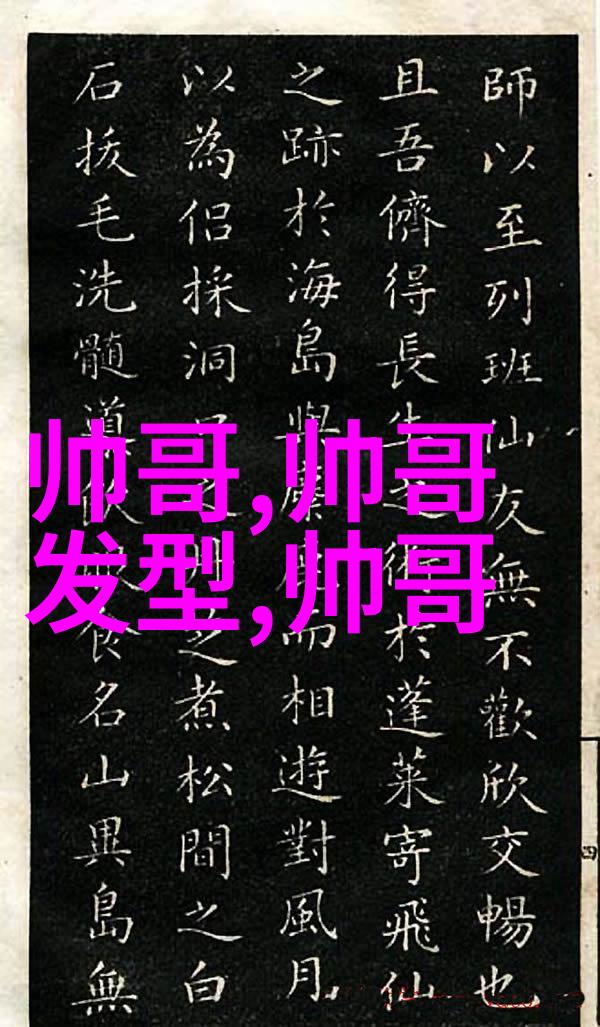 師以至列班仙友無不歡欣交暢也
且吾儕得長生之術於蓬萊寄飛仙
之跡於海島與麋鹿而相遊對風月
以為侣採洞之丹之煮松間之白
石拔毛洗髓道飲食名山異島無
帅哥,帅哥
发型,帅哥
四